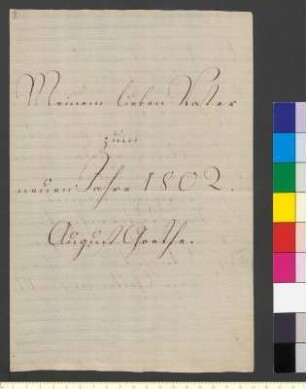 Meinem lieben Vater
zum
neuen Jahre 1802.
August Goethe.